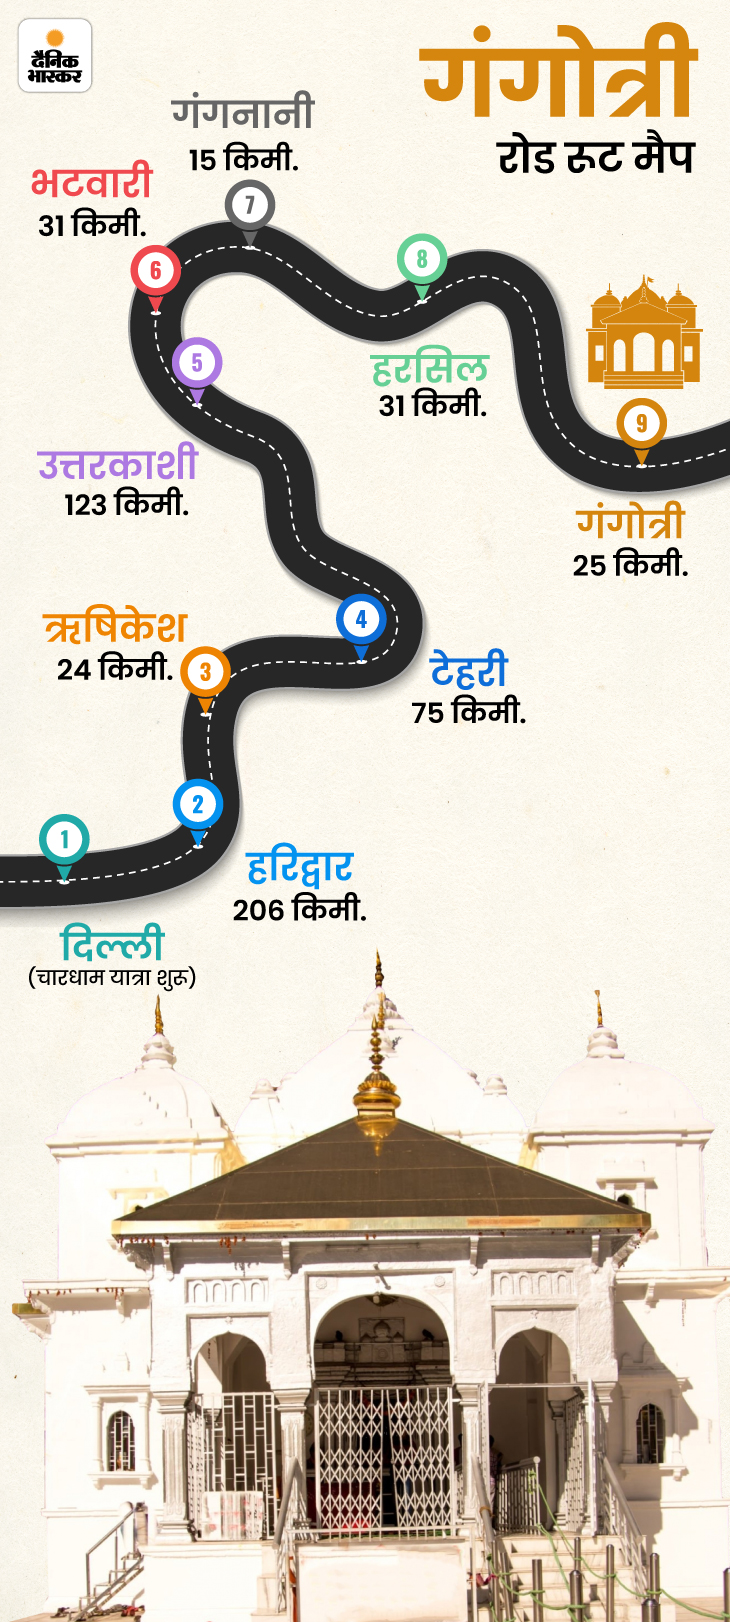 दैनिक
भास्कर
गंगोत्री
रोड रूट मैप
गंगनानी
15 किमी.
भटवारी
31 किमी.
7
6
8
5
हरसिल
31 किमी.
9
उत्तरकाशी
123 किमी.
गंगोत्री
25 किमी.
4
ऋषिकेश
24 किमी.
3
टेहरी
75 किमी.
2
1
हरिद्वार
206 किमी.
दिल्ली
(चारधाम यात्रा शुरू)